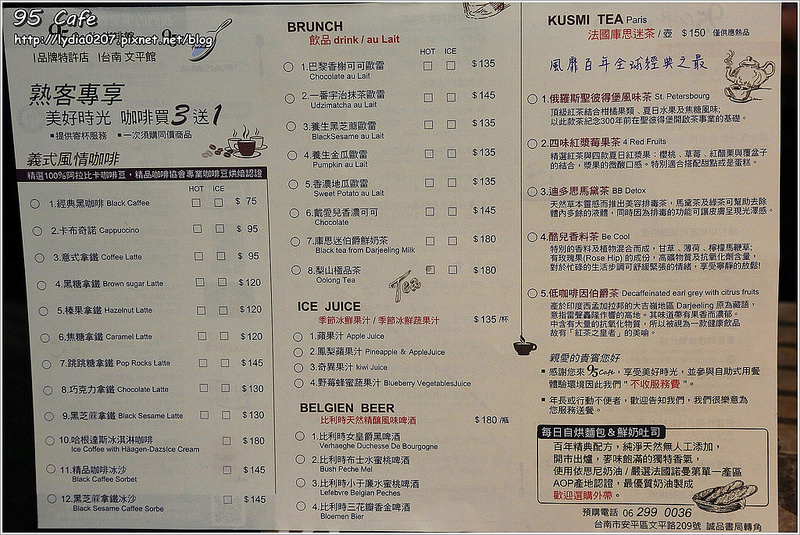 95 Cafe
http://lydia0207.pixnet.net/blog
品牌特許店 台南 文平館
熟客專享
美好時光 咖啡買3送1
▪提供寄杯服務 ▪一次須購同價商品
義式風情咖啡
精選100%阿拉比卡咖啡豆，精品咖啡協會專業咖啡豆烘焙認證
HOT ICE
1.經典黑咖啡 Black Caffee $ 75
2.卡布奇諾 Cappuccino $ 95
3.意式拿鐵 Coffee Latte $ 95
4.黑糖拿鐵 Brown sugar Latte $120
5.榛果拿鐵 Hazelnut Latte $120
6.焦糖拿鐵 Caramel Latte $120
7.跳跳糖拿鐵 Pop Rocks Latte $145
8.巧克力拿鐵 Chocolate Latte $130
9.黑芝蔴拿鐵 Black Sesame Latte $130
10.哈根達斯冰淇淋咖啡 $180
Ice Coffee with Häagen-DazsIce Cream
11.精品咖啡冰沙 $145
Black Caffee Sorbet
12.黑芝蔴拿鐵冰沙 $145
Black Sesame Caffee Sorbe
BRUNCH
飲品 drink / au Lait
HOT ICE
1.巴黎香榭可可歐蕾 $135
Chocolate au Lait
2.一番宇治抹茶歐蕾 $145
Udzimatcha au Lait
3.養生黑芝蔴歐蕾 $135
BlackSesame au Lait
4.養生金瓜歐蕾 $145
Pumpkin au Lait
5.香濃地瓜歐蕾 $135
Sweet Potato au Lait
6.戴愛兒香濃可可 $145
Chocolate
7.庫思迷伯爵鮮奶茶 $180
Black tea from Darjeeling Milk
8.梨山極品茶 $180
Oolong Tea
Tea
ICE JUICE
季節冰鮮果汁 / 季節冰鮮蔬果汁 $135 /杯
1.蘋果汁 Apple Juice
2.鳳梨蘋果汁 Pineapple & AppleJuice
3.奇異果汁 kiwi Juice
4.野莓蜂蜜蔬果汁 Blueberry VegetablesJuice
BELGIEN BEER
比利時天然精釀風味啤酒 $180 /瓶
1.比利時女皇爵黑啤酒
Verhaeghe Duchesse De Bourgogne
2.比利時布士水蜜桃啤酒
Bush Peche Mel
3.比利時小于廉水蜜桃啤酒
Lefebvre Belgian Peches
4.比利時三花瓣香金啤酒
Bloemen Bier
KUSMI TEA Paris
法國庫思迷茶 / 壺 $150 僅供應熱品
風靡百年全球經典之最
1.俄羅斯聖彼得堡風味茶 St. Petersbourg
頂級紅茶結合柑橘果類、夏日水果及焦糖風味;
以此款茶紀念300年前在聖彼得堡開啟茶事業的基礎。
2.四味紅漿莓果茶 4 Red Fruits
精選紅茶與四款夏日紅漿果：櫻桃、草莓、紅醋栗與覆盆子
的結合，漿果的微酸口感。特別適合搭配甜點或是蛋糕。
3.迪多思馬黛茶 BB Detox
天然草本靈感而推出美容排毒茶，馬黛茶及綠茶可幫助去除
體內多餘的液體，同時因為排毒的功能可讓皮膚呈現光澤感。
4.酷兒香料茶 Be Cool
特別的香料及植物混合而成，甘草、薄荷、檸檬馬鞭草;
有玫瑰果(Rose Hip) 的成份，高礦物質及抗氧化劑含量，
對於忙碌的生活步調可舒緩緊張的情緒，享受寧靜的放鬆!
5.低咖啡因伯爵茶 Decaffeinated earl grey with citrus fruits
產於印度西孟加拉邦的大吉嶺地區 Darjeeling 原為藏語，
意指雷聲轟隆作響的高地。其味道帶有果香而濃郁。
中含有大量的抗氧化物質，所以被視為一款健康飲品
故有「紅茶之皇者」的美喻。
親愛的貴賓您好
▪感謝您來 95Cafe，享受美好時光，並參與自助式用餐
體驗環境因此我們 " 不收服務費 "。
▪年長或行動不便者，歡迎告知我們，我們很樂意為
您服務送餐。
每日自烘麵包＆鮮奶吐司
百年精典配方，純淨天然無人工添加，
開市出爐，麥味飽滿的獨特香氣，
使用依思尼奶油 / 嚴選法國諾曼第單一產區
AOP產地認證，最優質奶油製成
歡迎選購外帶。
預購電話 06 299 0036
台南市安平區文平路209號 誠品書局轉角